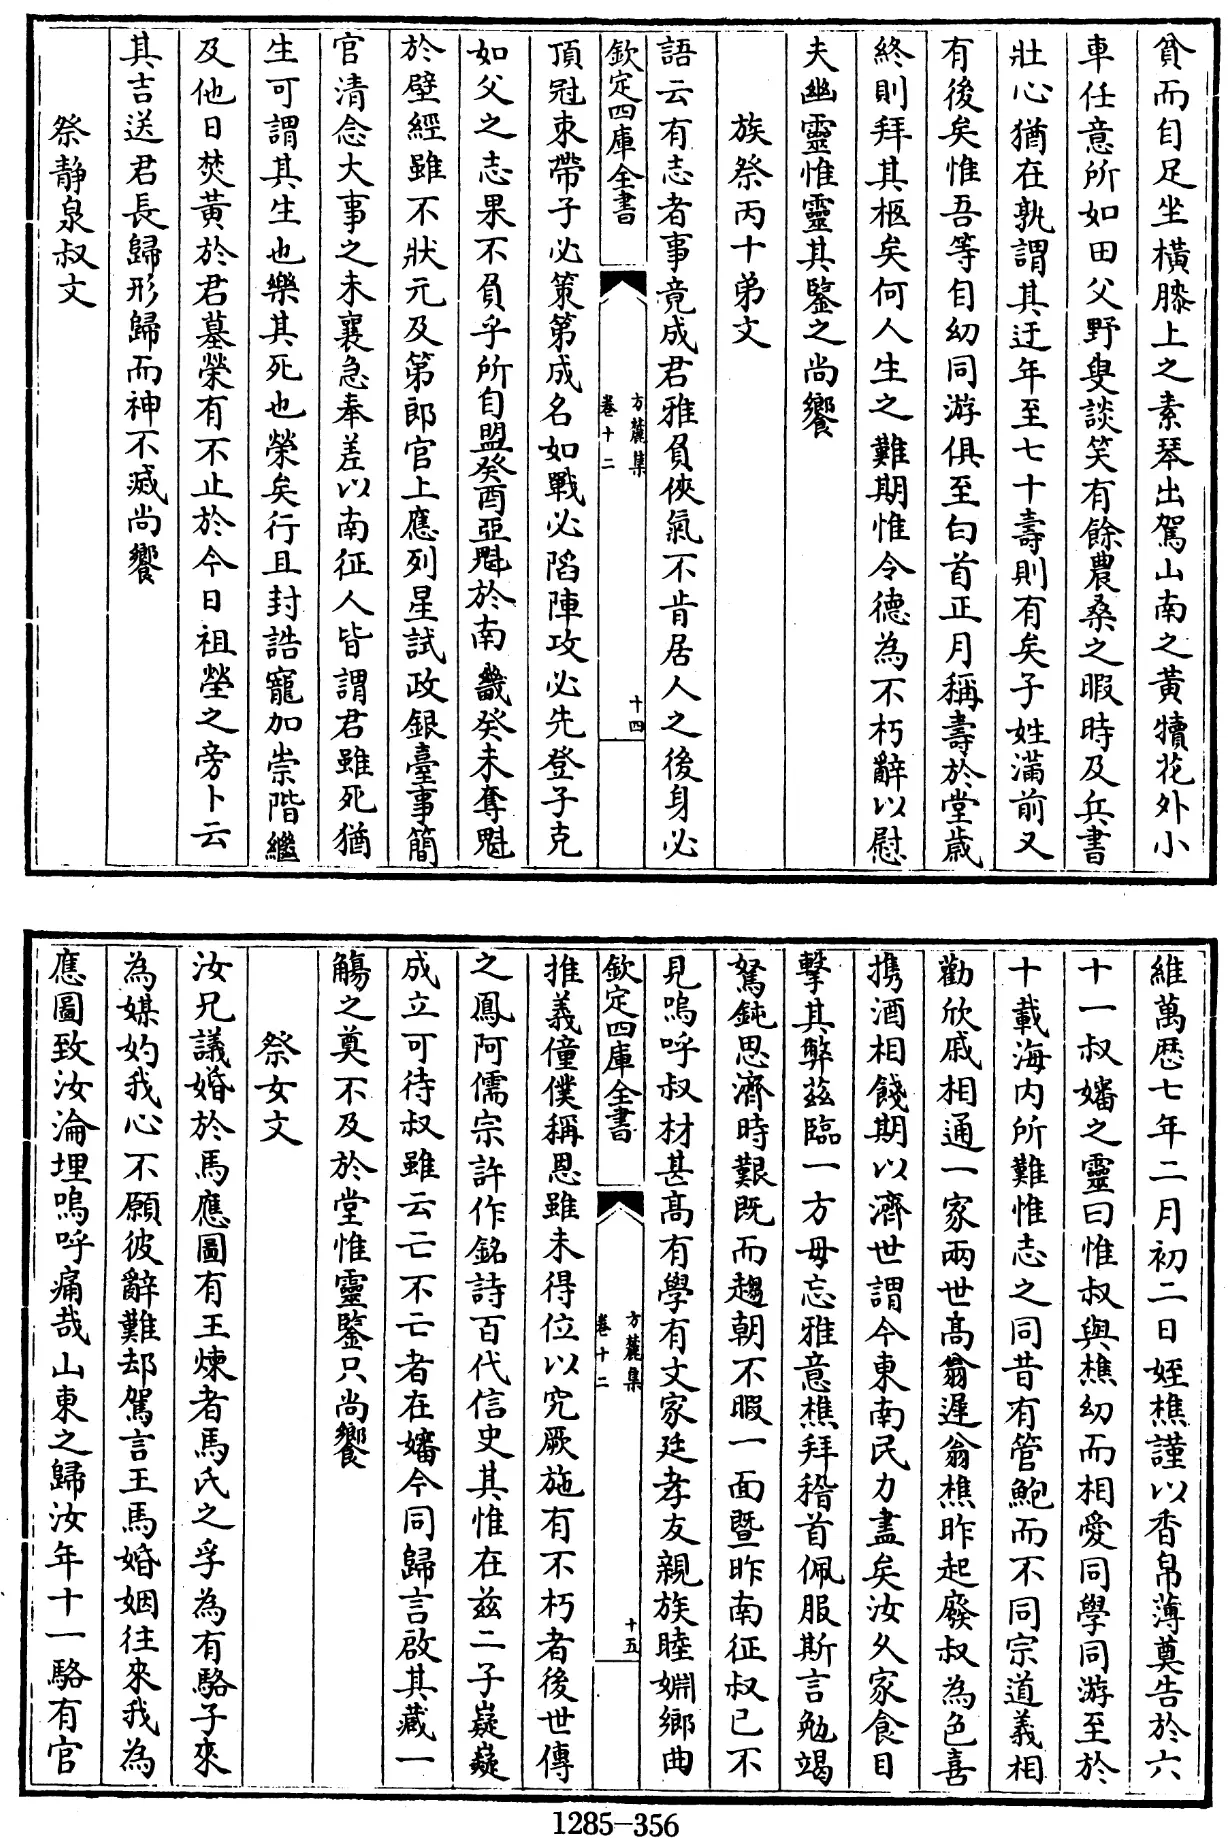 貧而自足坐橫膝上之素琴出駕山南之黃犢花外小
車任意所如田父野叟談笑有餘農桑之暇時及兵書
壯心猶在孰謂其迂年至七十壽則有矣子姓滿前又
有後矣惟吾等自幼同游俱至白首正月稱壽於堂歲
終則拜其柩矣何人生之難期惟令德為不朽辭以慰
夫幽靈惟靈其鑒之尚饗
族祭丙十弟文
語云有志者事竟成君雅負俠氣不肯居人之後身必
欽定四庫全書
方麓集
卷十二
十四
頂冠束帶子必策第成名如戰必䧟陣攻必先登子克
如父之志果不負乎所自盟癸酉亞魁於南畿癸未奪魁
於壁經雖不狀元及第郎官上應列星試政銀臺事簡
官清念大事之未襄急奉差以南征人皆謂君雖死猶
生可謂其生也樂其死也榮矣行且封誥寵加崇階繼
及他日焚黃於君墓榮有不止於今日祖塋之旁卜云
其吉送君長歸形歸而神不滅尚饗
祭靜泉叔文
維萬歷七年二月初二日姪樵謹以香帛薄奠告於六
十一叔嬸之靈曰惟叔與樵幼而相愛同學同游至於
十載海内所難惟志之同昔有管鮑而不同宗道義相
勸欣戚相通一家兩世髙翁遲翁樵昨起廢叔為色喜
携酒相餞期以濟世謂今東南民力盡矣汝久家食目
擊其弊茲臨一方毋忘雅意樵拜稽首佩服斯言勉竭
駑鈍思濟時艱既而趨朝不暇一面暨昨南征叔已不
見嗚呼叔材甚髙有學有文家廷孝友親族睦婣鄉曲
欽定四庫全書
方麓集
卷十二
十五
推義僮僕稱恩雖未得位以究厥施有不朽者後世傳
之鳳阿儒宗許作銘詩百代信史其惟在茲二子嶷嶷
成立可待叔雖云亡不亡者在嬸今同歸言啟其藏一
觴之奠不及於堂惟靈鑒只尚饗
祭女文
汝兄議婚於馬應圖有王煉者馬氏之孚為有駱子來
為媒妁我心不願彼辭難却駕言王馬婚姻往來我為
應圖致汝淪埋嗚呼痛哉山東之歸汝年十一駱有官
1285-356